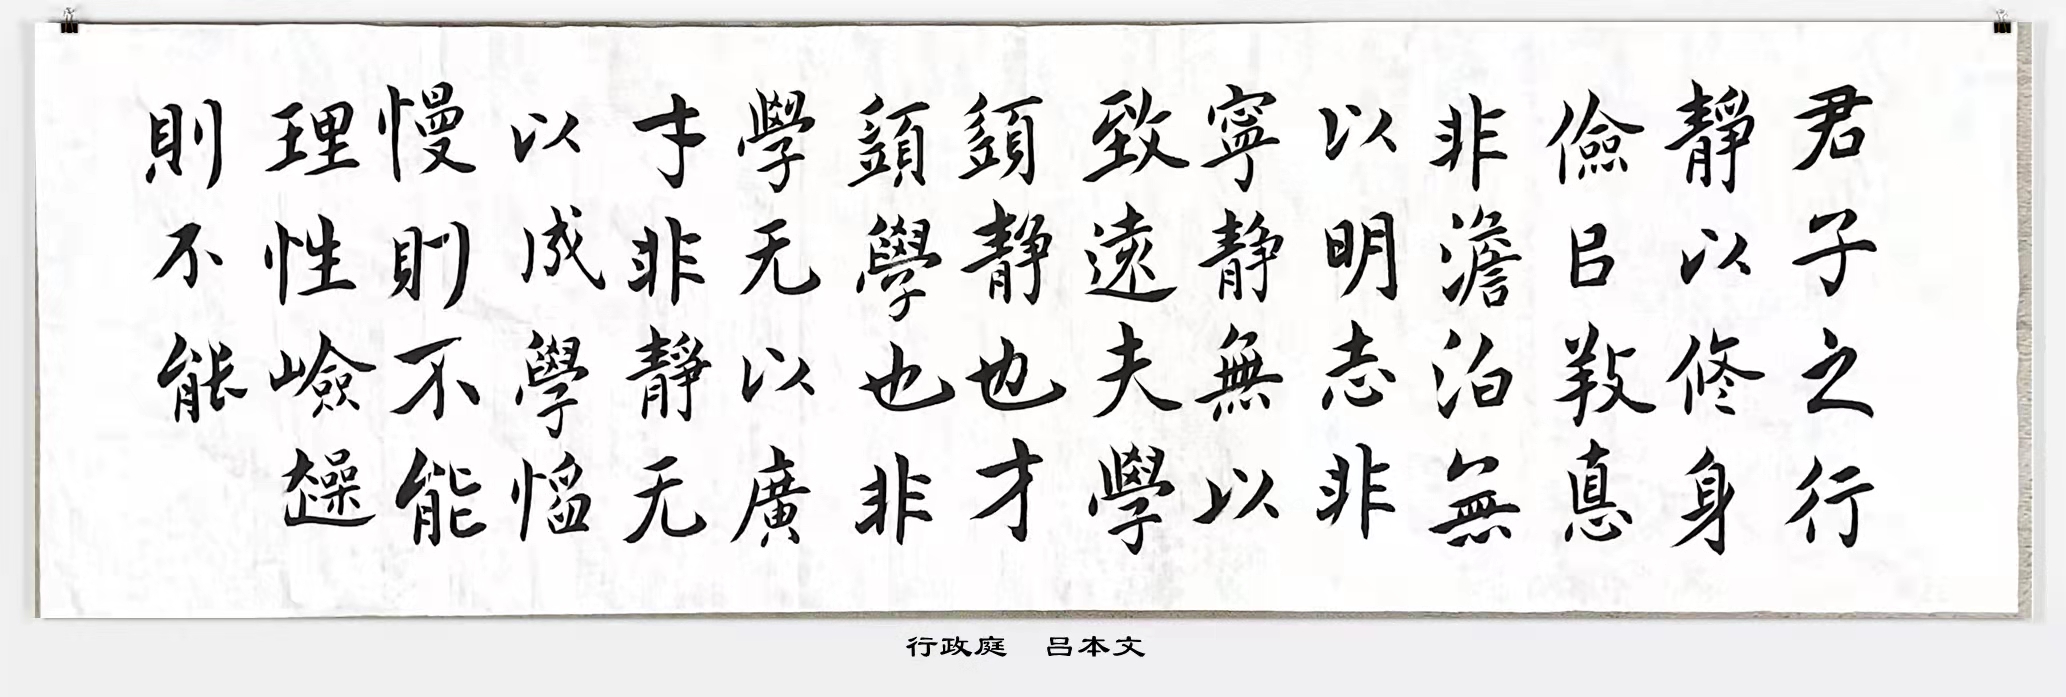 君子之行
靜以修身
儉㠯𢼝悳
非澹泊無
以明志非
寧静無以
致遠夫學
須静也才
須學也非
學无以廣
才非靜无
以成學慆
慢則不能
理性嶮趮
則不能
行政庭 吕本文